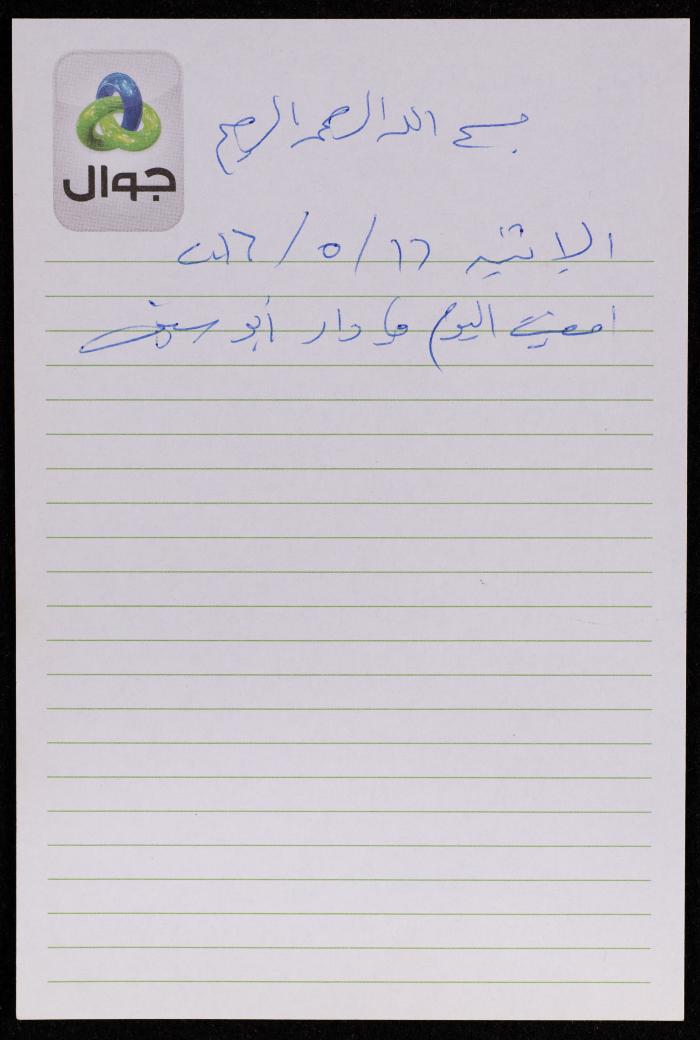 جوال
بسم الله الرحمن الرحيم
الاثنين ١٦ / ٥ /
امضيت اليوم في دار أبو